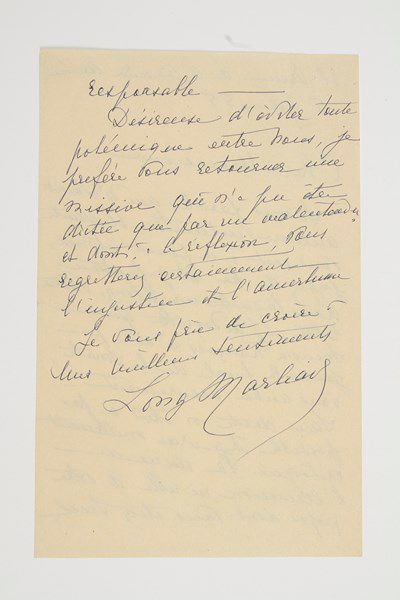 responsable ———
Désireuse d'éviter toute
polémique entre nous, je
préfère vous retourner une
missive qui n'a pu être
dictée que par un malentendu
et dont, à la réflexion, vous
regretterez certainement
l'injustice et l'amertume
Je vous prie de croire à
mes meilleurs sentiments
Long Marliave